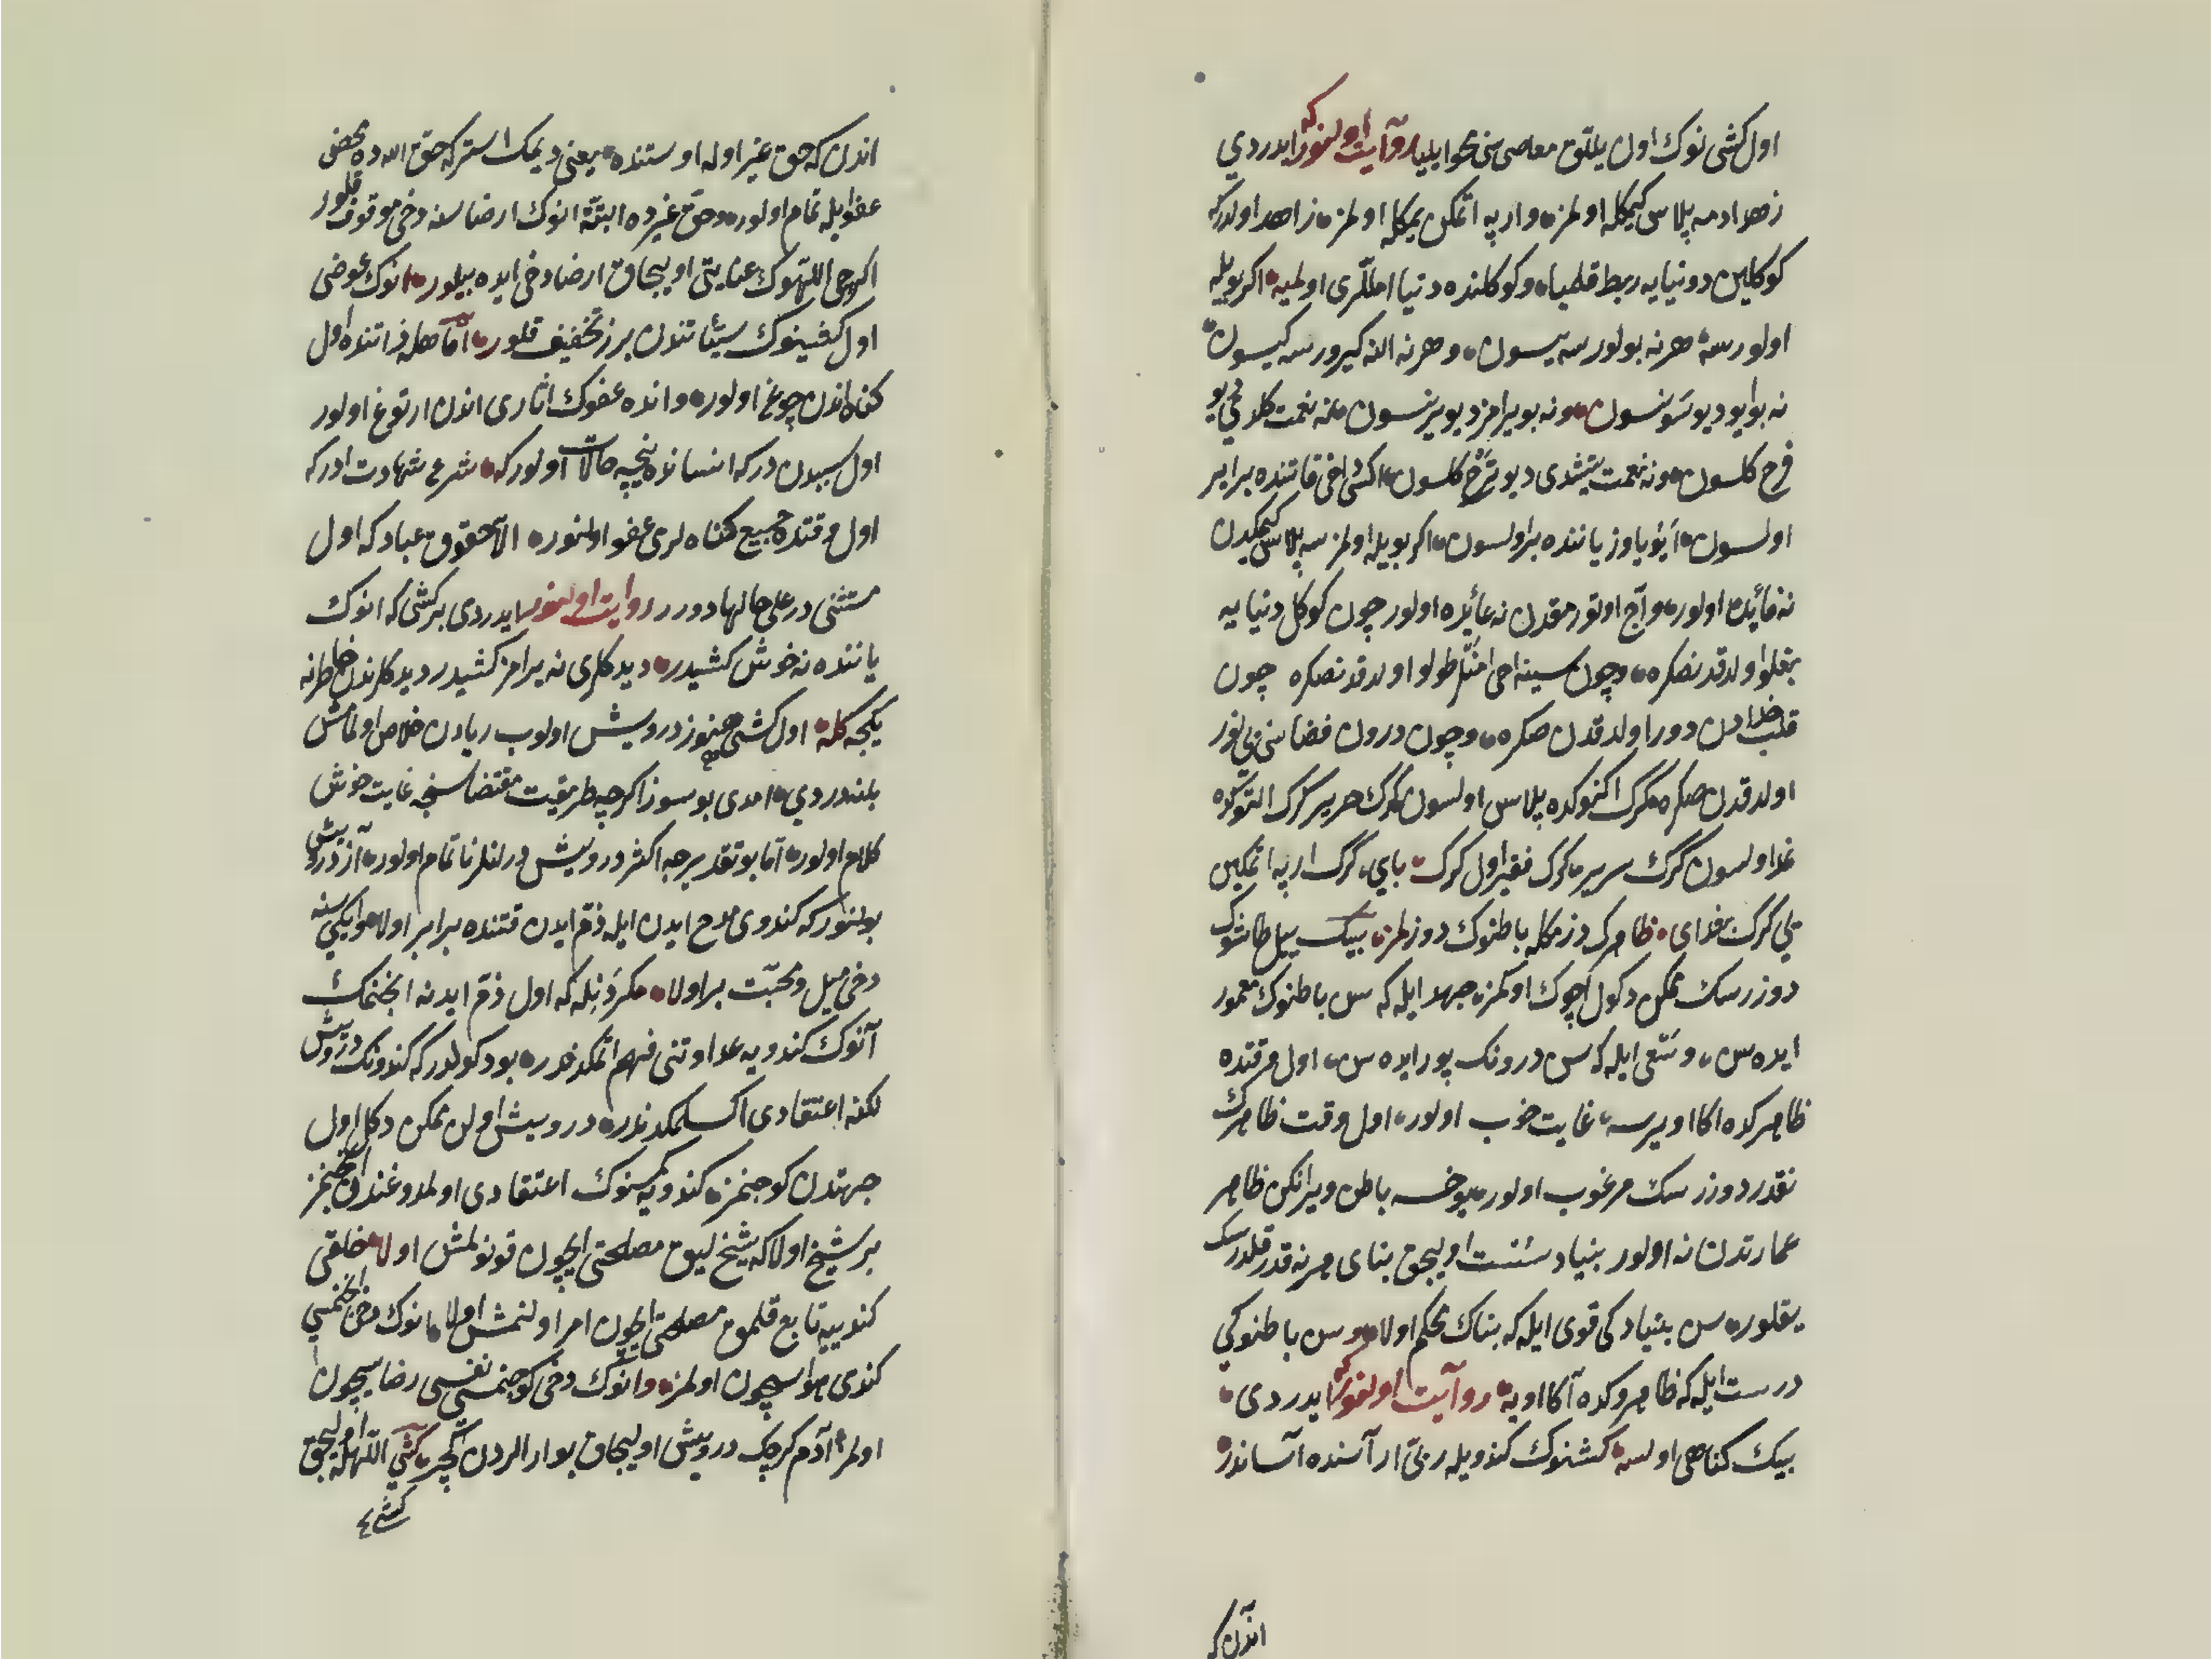 اول كشی نوك اول يللق معاصی سنی محو ايليا روآيت اولنور كه ايدردي
زهد ادمه پلاس كيمكله اولمز و ارپه اتمكن يمكله اولمز زاهد اولدركه
كوكلين دونيايه ربط قلميا وكوكلنده دنيا امللری اولميه اكر بويله
اولورسه هرنه بولورسه يسون وهرنه الينه كيرورسه كيسون
نه بو ايو ديو سونسون ونه بو يرامز ديو يرنسون نه نعمت كلدی ديو
فرح كلسون ونه نعمت يتشدی ديو ترح كلسون ايكسی دخی قاتنده برابر
اولسون ايو ياوز ياننده بر اولسون اكر بويله اولمز سه پلاس كيمكدن
نه فائده اولور و آج اوتورمقدن نه عائده اولور چون كوكل دنيا يه
بغلو اولدقدنصكره وچون سينه احی امللر طولو اولدقدنصكره چون
قلب خدادن دور اولدقدن صكره وچون درون فضاسی بی نور
اولدقدن صكره كرك اكنوكده پلاس اولسون كرك حرير كرك التوكده
غدا اولسون كرك سرير كرك فقير اول كرك باي كرك ارپه اتمكين
يي كرك غدای ظاهرك دزمكله باطنوك دوزلمز بيك ييل طاشوك
دوزرسك ممكن دكول ايچوك اوكمز جهد ايله كه سن باطنوك معمور
ايده سن و سعی ايله كه سن درونك پور ايده سن اول وقتده
ظاهركده اكا اويرسه غايت خوب اولور اول وقت ظاهرك
نقدر دوزرسك مرغوب اولور يوخسه باطن ويرانكن ظاهر
عمارتدن نه اولور بنياد سست اوليجق بنای هرنه قدر قلدرسك
يقلور سن بنيادكی قوی ايله كه بناك محكم اولا و سن باطنوكی
درست ايله كه ظاهروكده آكا اويه روآيت اولنور كه ايدردی
بيك كناهی اولسه كشنوك كندويله ربی ار آسنده آساندر
اندن كه
اندن كه حق غير اوله اوستنده يعنی ديمك استر كه حق الله ده محض
عفوايله تمام اولور وحق غيرده البتّة انوك ارضاسنه دخی موقوف قلور
اكرچی اللّهوك عنايتی اوليجاق ارضا دخی ايده بيلور انوك عوضی
اول كشينوك سيئاتندن برز تخفيف قلور آمّا هله فراتنده اول
كناه اندن چوغ اولور وانده عفوك اثاری اندن ارتوغ اولور
اول سببدن در كه انسانده نيچه حالات اولور كه شرع شهادت ادركه
اول وقتده جميع كناه لری عفو اولنور الاّ حقوق عباد كه اول
مستثنی در علی حالها دورر روايت اولنور ايدردی بر كشی كه انوك
ياننده نه خوش كشيدر ديدكلری نه يرامز كشيدر ديدكلرندن خاطرنه
يكجه كله اول كشی هنوز درويش اولوب ريادن خلاص اولمامش
بلندردي امدی بو سوز اكرچه طريقت مقتضاسنجه غايت خوش
كلام اولور آما بو تقديرجه اكثر درويش درلنلر نا تمام اولور آز درويش
بولنور كه كندوی مدح ايدن ايله ذم ايدن قتنده برابر اولا و ايكيسنه
دخی ميل و محبّت بر اولا مكر دنيله كه اول ذم ايدنه انجنمك
آنوك كندويه عداوتنی فهم اتمكدندر بو دكولدر كه كندونك درويش
لكنه اعتقادی اكسلمكدندر درويش اولن ممكن دكل اول
جهتدن كوجنمز كندويه كمسنوك اعتقادی اولمدوغندن انجنمز
بر شيخ اولا كه شيخ ليق مصلحتی ايچون قونولمش اولا خلقی
كندييه تابع قلمق مصلحتی ايچون امر اولنمش اولا انوك دخی انجنمسي
كندی هواسيچون اولمز و انوك دخی كوجنمسی نفسی رضاسيچون
اولمز آدم كرچك درويش اوليجاق بولاردن كچر كشي اللّهله اوليجق
كشی